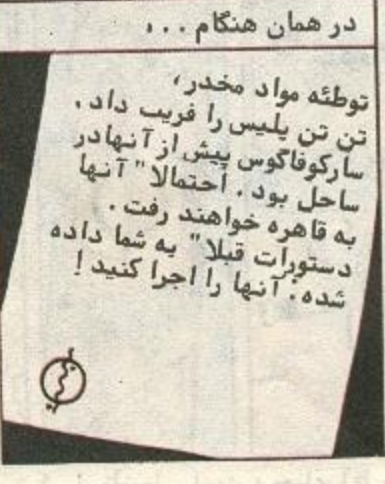 در همان هنگام ...
توطئه مواد مخدر،
تن تن پلیس را فریب داد.
سارکوفاگوس پیش از آنها در
ساحل بود. احتمالا" آنها
به قاهره خواهند رفت.
دستورات قبلا" به شما داده
شده. آنها را اجرا کنید!